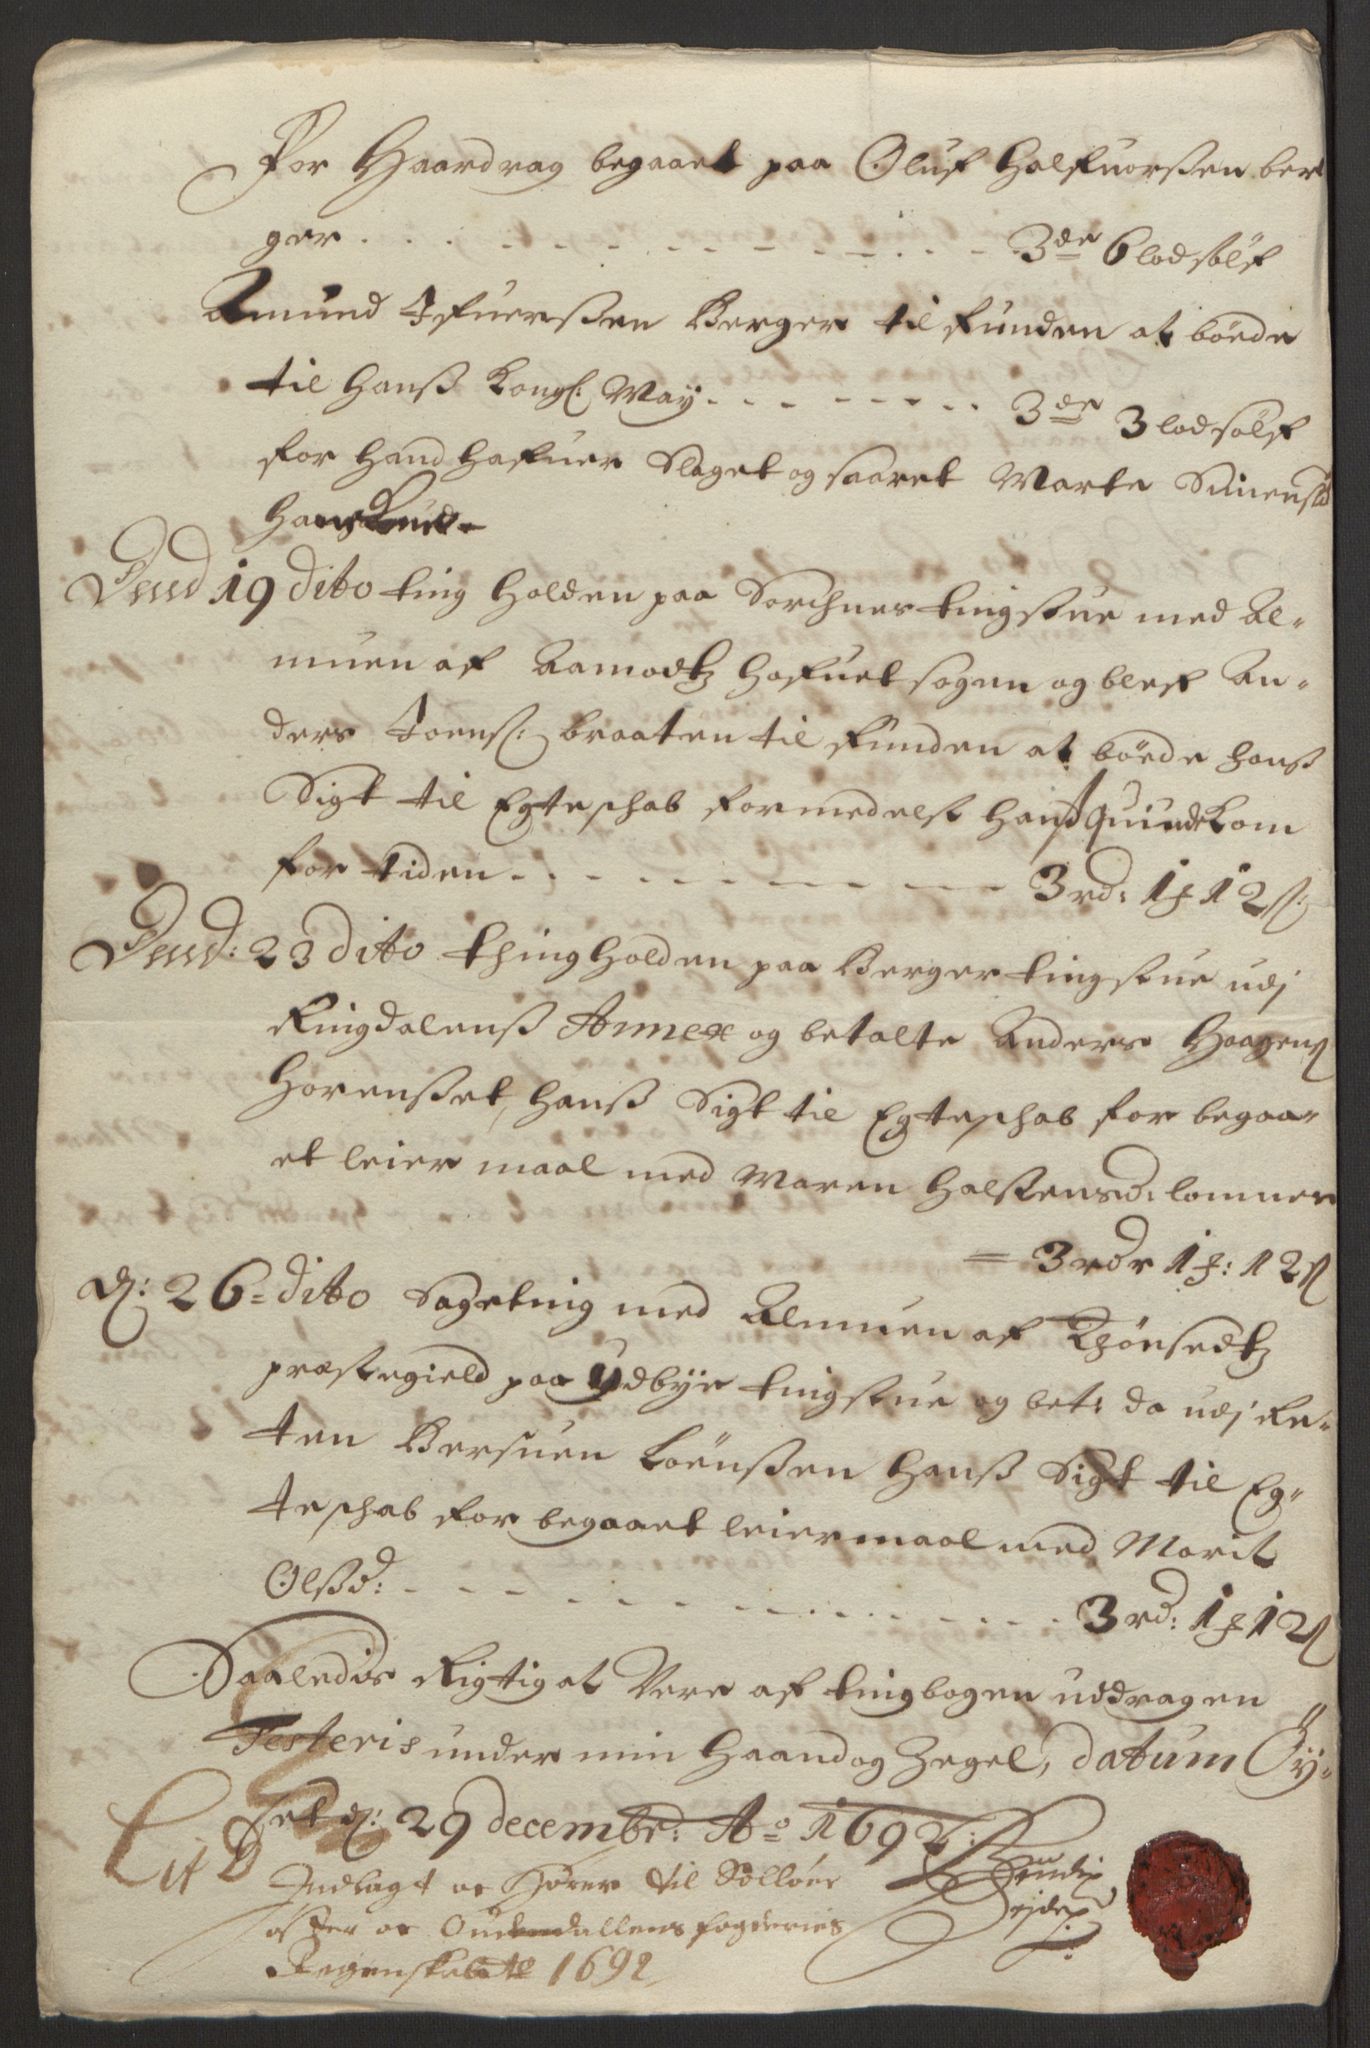 For Haardrag begaaet paa Oluf Halfuorßen ber
ger . . . . . . . . . . . . 3de 6 lod sølf
Amund Ifuerßen Berger til funden at bøede
til Hanß Kongl: May . . . . . . . . 3de 3 lod sølf
for hand hafuer Slaget og saaret Marte Simensd
Den 19 dito ting holden paa Sorchnes tingstue med Al-
muen af Aamodtz Hofuet sogen og blef An-
ders Joenß: braaten til funden at bøede hanß
Sigt til Egteschab formedelst hanß quinde kom
for tiden . . . . . . . . . . 3 rd: 1 f 12 ß:
Den: 23 dito thing holden paa Berger tingstue udj
Ringdalenß Annex og betalte Anders Haagenß
Horenßet, hanß Sigt til Egteschab for begaa-
et leiermaal med Maren Halstensd: lomner
= 3 rdr 1 f: 12 ß
d: 26 = dito Sageting med Almuen af Thönsedtz
præstegield paa Udbye tingstue og bet: da udj Re-
ten Bersuen Loënßen hanß Sigt til Eg-
teschab for begaaet leiermaal med Marit
Olßd: . . . . . . . . . . 3 rd: 1 f 12 ß
Saaledis Rigtig at Vere af tingbogen uddragen
Testeris under min Haand og Zegel, datum Öy-
set d: 29 decembr: Ao 1692:
Lit D
Indlagt oc Hører til Solløer
øster oc Oudallens fogderies
Regenskab 1692